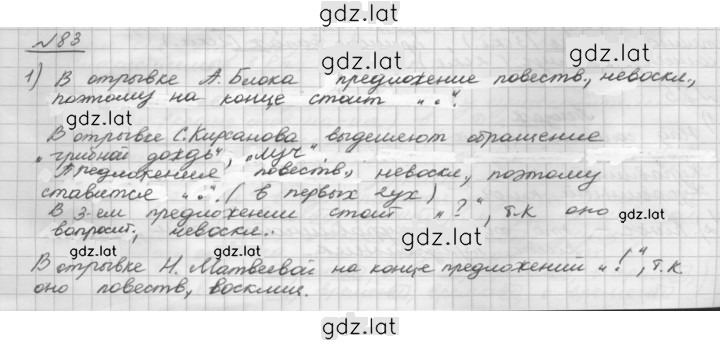 gdz.lat
№83
gdz.lat
gdz.lat
1) В отрывке А. Блока предложение повеств., невоскл.,
поэтому на конце стоит „."
gdz.lat
В отрывке С. Кирсанова выделяют обращение
„грибной дождь", „луч".
Предложения повеств., невоскл., поэтому
ставится „.". (в первых 2ух)
В 3-ем предложении стоит „?", т.к оно
gdz.lat
вопросит., невоскл..
gdz.lat
gdz.lat
В отрывке Н. Матвеевой на конце предложений „!", т.к.
оно повеств, восклиц.
gdz.lat
gdz.lat